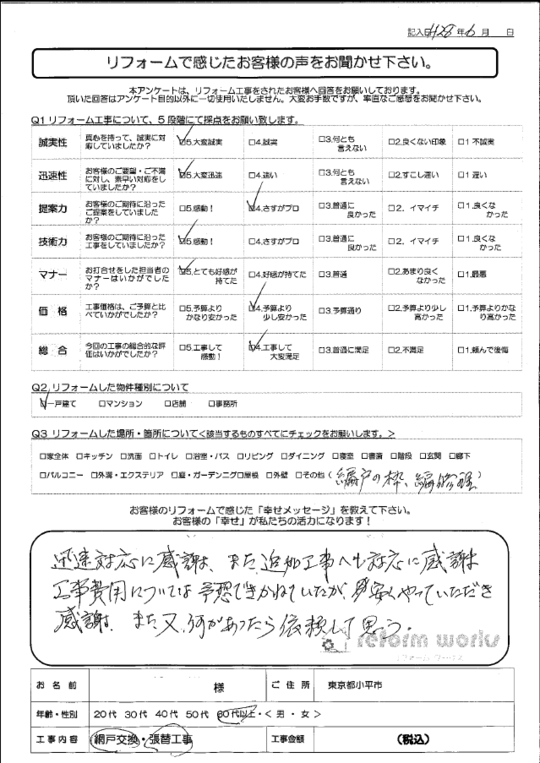 記入日 H28年6月 日
リフォームで感じたお客様の声をお聞かせ下さい。
本アンケートは、リフォーム工事をされたお客様へ回答をお願いしております。
頂いた回答はアンケート目的以外に一切使用いたしません。大変お手数ですが、率直なご感想をお聞かせ下さい。
Q1 リフォーム工事について、5段階にて採点をお願い致します。
誠実性 真心を持って、誠実に対応していましたか? ☑5.大変誠実 □4.誠実 □3.何とも言えない □2.良くない印象 □1 不誠実
迅速性 お客様のご要望・ご不満に対し、素早い対応をしていましたか? ☑5.大変迅速 □4.速い □3.何とも言えない □2.すこし遅い □1 遅い
提案力 お客様のご期待に沿ったご提案をしていましたか? □5.感動! ☑4.さすがプロ □3.普通に良かった □2.イマイチ □1.良くなかった
技術力 お客様のご期待に沿った工事をしていましたか? ☑5.感動! □4.さすがプロ □3.普通に良かった □2.イマイチ □1.良くなかった
マナー お打合せをした担当者のマナーはいかがでしたか? ☑5.とても好感が持てた □4.好感が持てた □3.普通 □2.あまり良くなかった □1.最悪
価格 工事価格は、ご予算と比べていかがでしたか? □5.予算よりかなり安かった ☑4.予算より少し安かった □3.予算通り □2.予算より少し高かった □1.予算よりかなり高かった
総合 今回の工事の総合的な評価はいかがでしたか? □5.工事して感動! ☑4.工事して大変満足 □3.普通に満足 □2.不満足 □1.頼んで後悔
Q2 リフォームした物件種別について
☑一戸建て □マンション □店舗 □事務所
Q3 リフォームした場所・箇所について<該当するものすべてにチェックをお願いします。>
□家全体 □キッチン □洗面 □トイレ □浴室・バス □リビング □ダイニング □寝室 □書斎 □階段 □玄関 □廊下
□バルコニー □外溝・エクステリア □庭・ガーデニング □屋根 □外壁 □その他(網戸の枠、網修理)
お客様のリフォームで感じた「幸せメッセージ」を教えて下さい。
お客様の「幸せ」が私たちの活力になります!
迅速対応に感謝、また追加工事へも対応に感謝
工事費用については予想できかねていたが、安くやっていただき
感謝、また又、何かあったら依頼して思う。
reform works
リフォームワークス
お名前 様 ご住所 東京都小平市
年齢・性別 20代 30代 40代 50代 60代以上・<男・女>
工事内容 網戸交換・張替工事 工事金額 (税込)